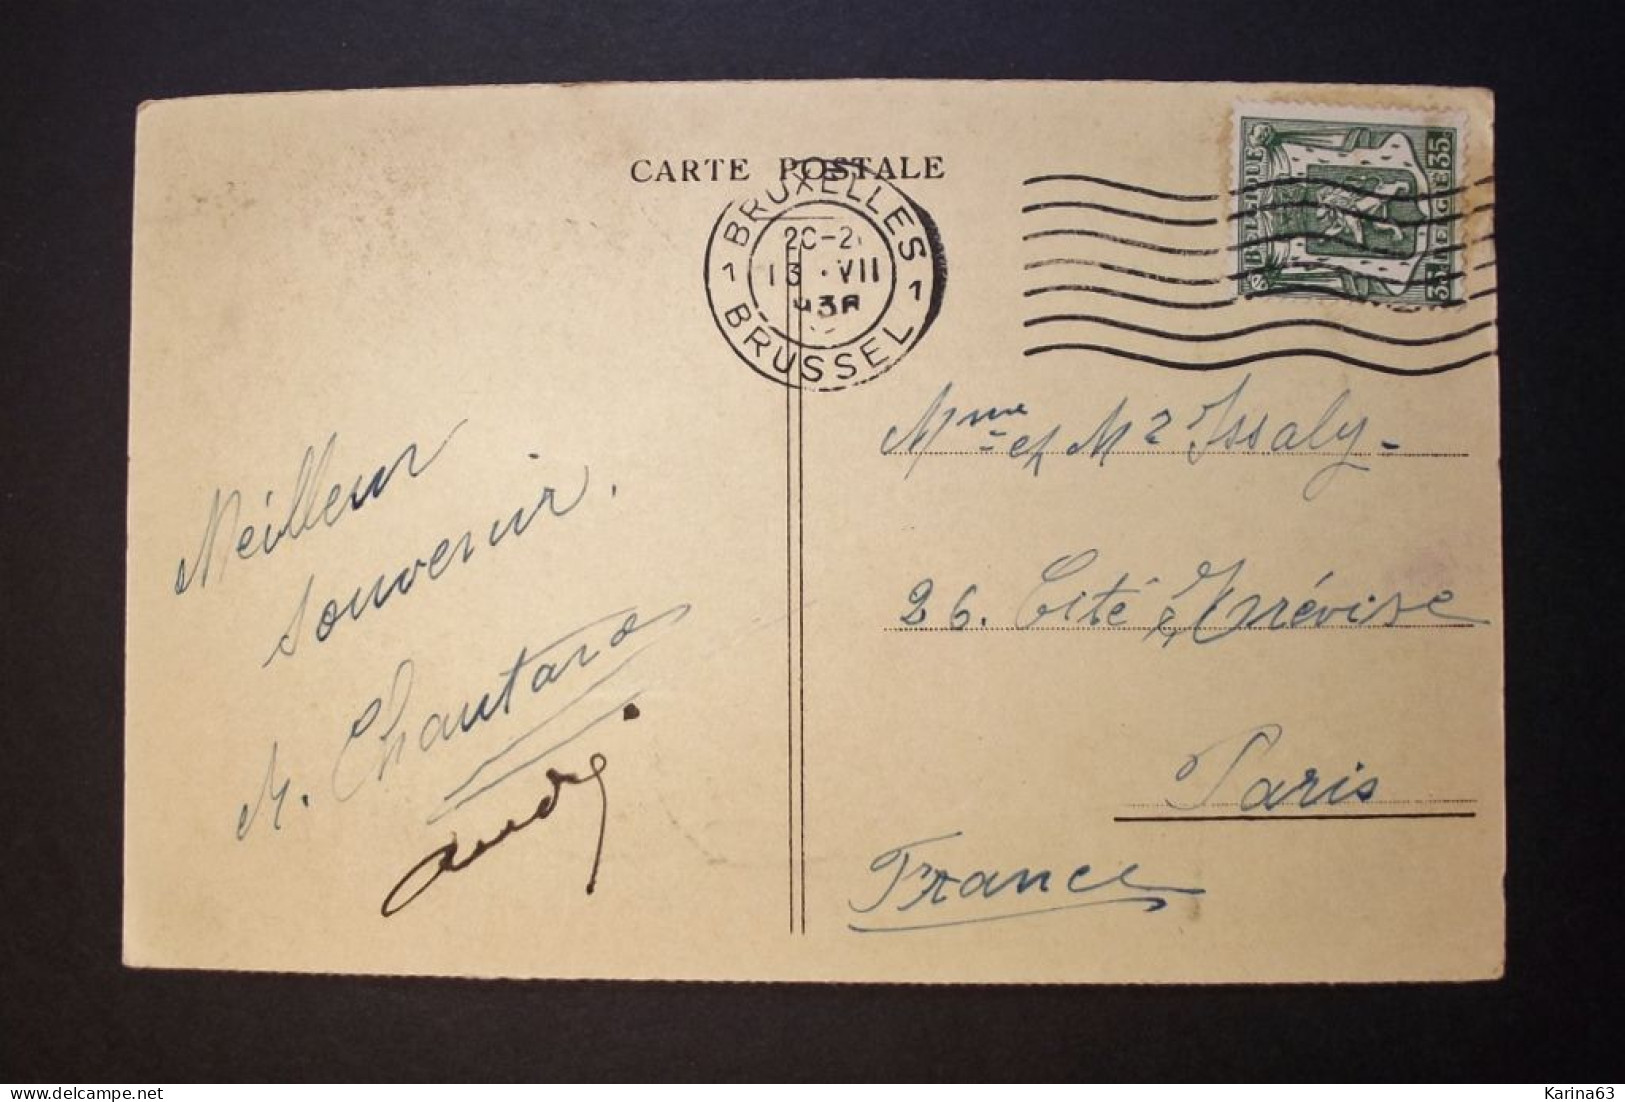 CARTE POSTALE
BRUXELLES
1 1
13 · VII
BRUSSEL
BELGIQUE 35
BELGIE 35
Meilleur
souvenir.
M. Chautard
André
Mme et Mr Issaly-
26. Cité Trévise
Paris
France
Karina63